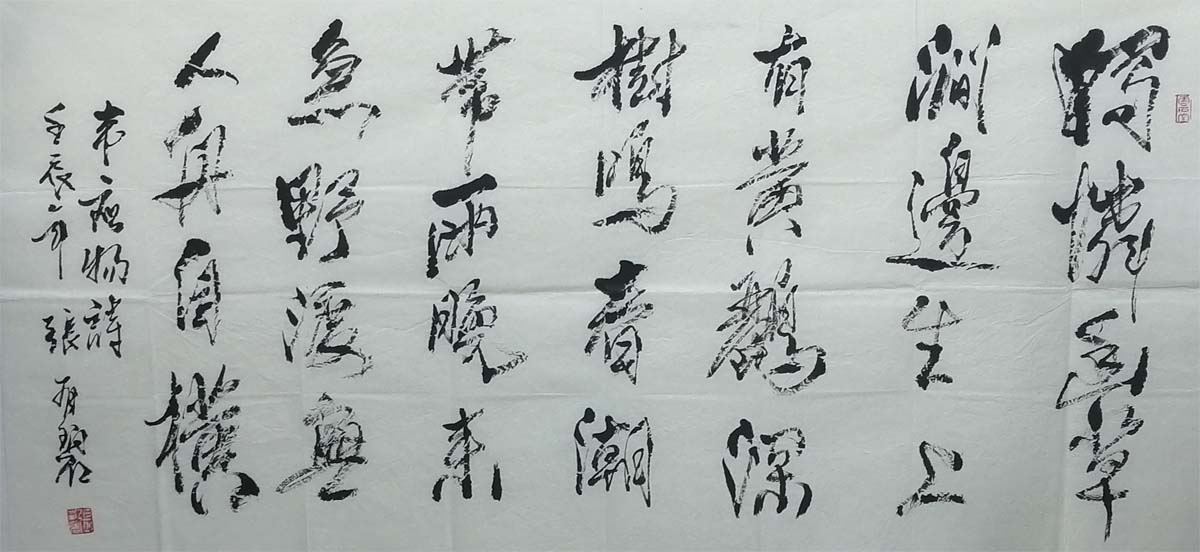 獨憐幽草
澗邊生上
有黃鸝深
樹鳴春潮
帶雨晚來
急野渡無
人舟自橫
韋應物詩
壬辰年 張有